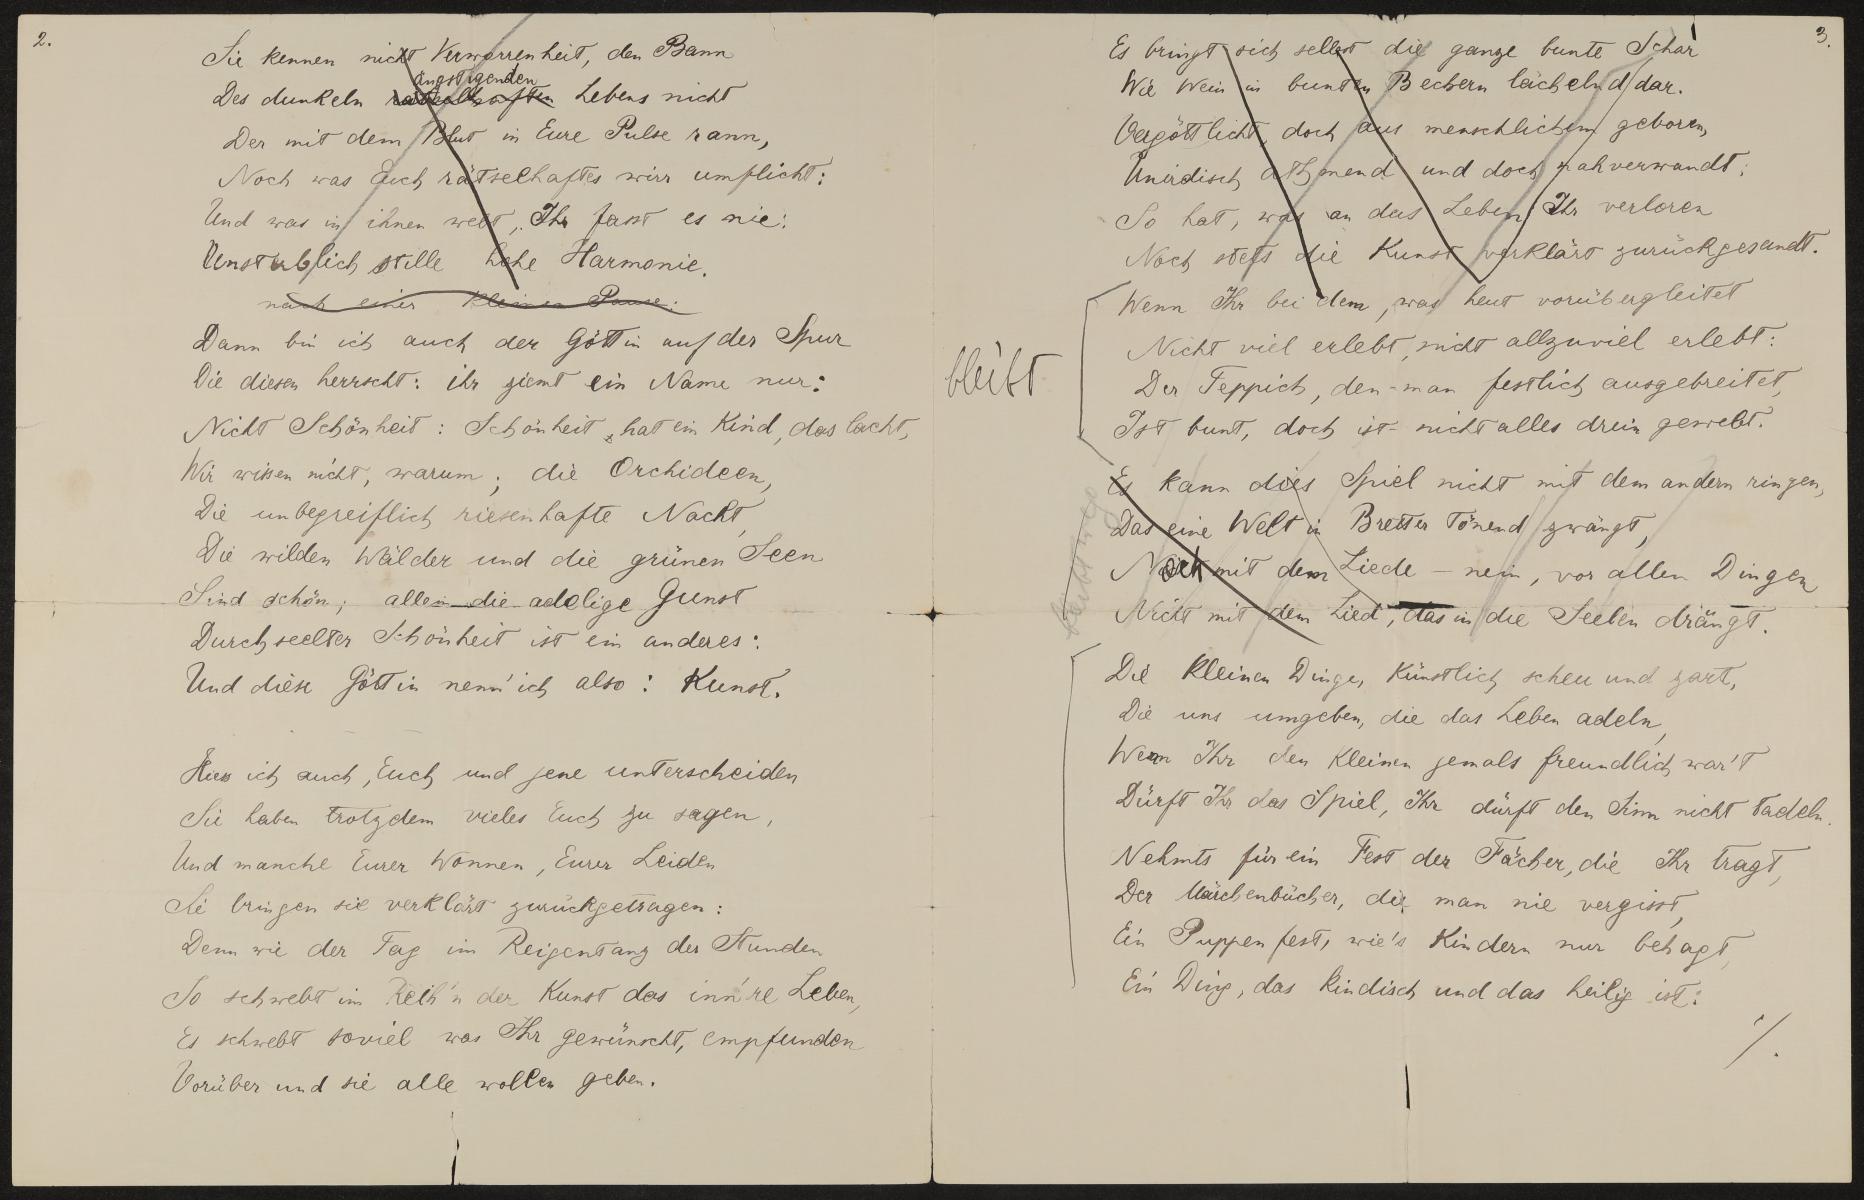 2.
Sie kennen nicht Verworrenheit, den Bann
ängstigenden
Des dunkeln rätselhaften Lebens nicht
Der mit dem Blut in Eure Pulse rann,
Noch was Euch rätselhaftes wirr umflicht:
Und was in ihnen webt, Ihr fasst es nie:
Unsterblich stille hohe Harmonie.
nach einer kleinen Pause:
Dann bin ich auch der Göttin auf der Spur
Die diesen herrscht: ihr ziemt ein Name nur:
Nicht Schönheit: Schönheit hat ein Kind, das lacht,
Wir wissen nicht, warum; die Orchideen,
Die unbegreiflich riesenhafte Nacht,
Die wilden Wälder und die grünen Seen
Sind schön; allein die adelige Gunst
Durchseelter Schönheit ist ein anderes:
Und diese Göttin nenn' ich also: Kunst.
Hiess ich auch, Euch und jene unterscheiden
Sie haben trotzdem vieles Euch zu sagen,
Und manche Eurer Wonnen, Eurer Leiden
Sie bringen sie verklärt zurückgetragen:
Denn wie der Tag im Reigentanz der Stunden
So schwebt im Reih'n der Kunst das inn're Leben,
Es schwebt soviel was Ihr gewünscht, empfunden
Vorüber und sie alle wollen geben.
3.
Es bringt sich selbst die ganze bunte Schar
Wie Wein in bunten Bechern lächelnd dar.
Vergöttlicht, doch aus menschlichem geboren,
Unirdisch athmend und doch nahverwandt;
So hat, was an das Leben Ihr verloren
Noch stets die Kunst verklärt zurückgesandt.
Wenn Ihr bei dem, was heut vorübergleitet
Nicht viel erlebt, nicht allzuviel erlebt:
bleibt
Der Teppich, den man festlich ausgebreitet,
Ist bunt, doch ist nicht alles drein gewebt.
Es kann dies Spiel nicht mit dem andern ringen,
Das eine Welt in Bretter tönend zwängt,
Noch mit dem Liede – nein, vor allen Dingen
Nicht mit dem Lied, das in die Seelen drängt.
Die kleinen Dinge, künstlich scheu und zart,
Die uns umgeben, die das Leben adeln,
Wenn Ihr den kleinen jemals freundlich war't
Dürft Ihr das Spiel, Ihr dürft den Sinn nicht tadeln.
Nehmts für ein Fest der Fächer, die Ihr tragt,
Der Märchenbücher, die man nie vergisst,
Ein Puppenfest, wie's Kindern nur behagt,
Ein Ding, das kindisch und das heilig ist:
./.